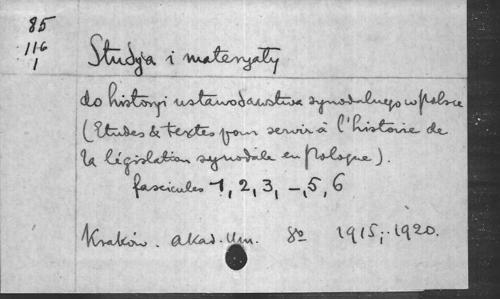 85
116
1
Studja i materyały
do historyi ustawodawstwa synodalnego w Polsce
(Etudes & textes pour servir à l'histoire de
la législation synodale en Pologne).
fascicules 1, 2, 3, –, 5, 6
Kraków. Akad. Um. 8º 1915; 1920.